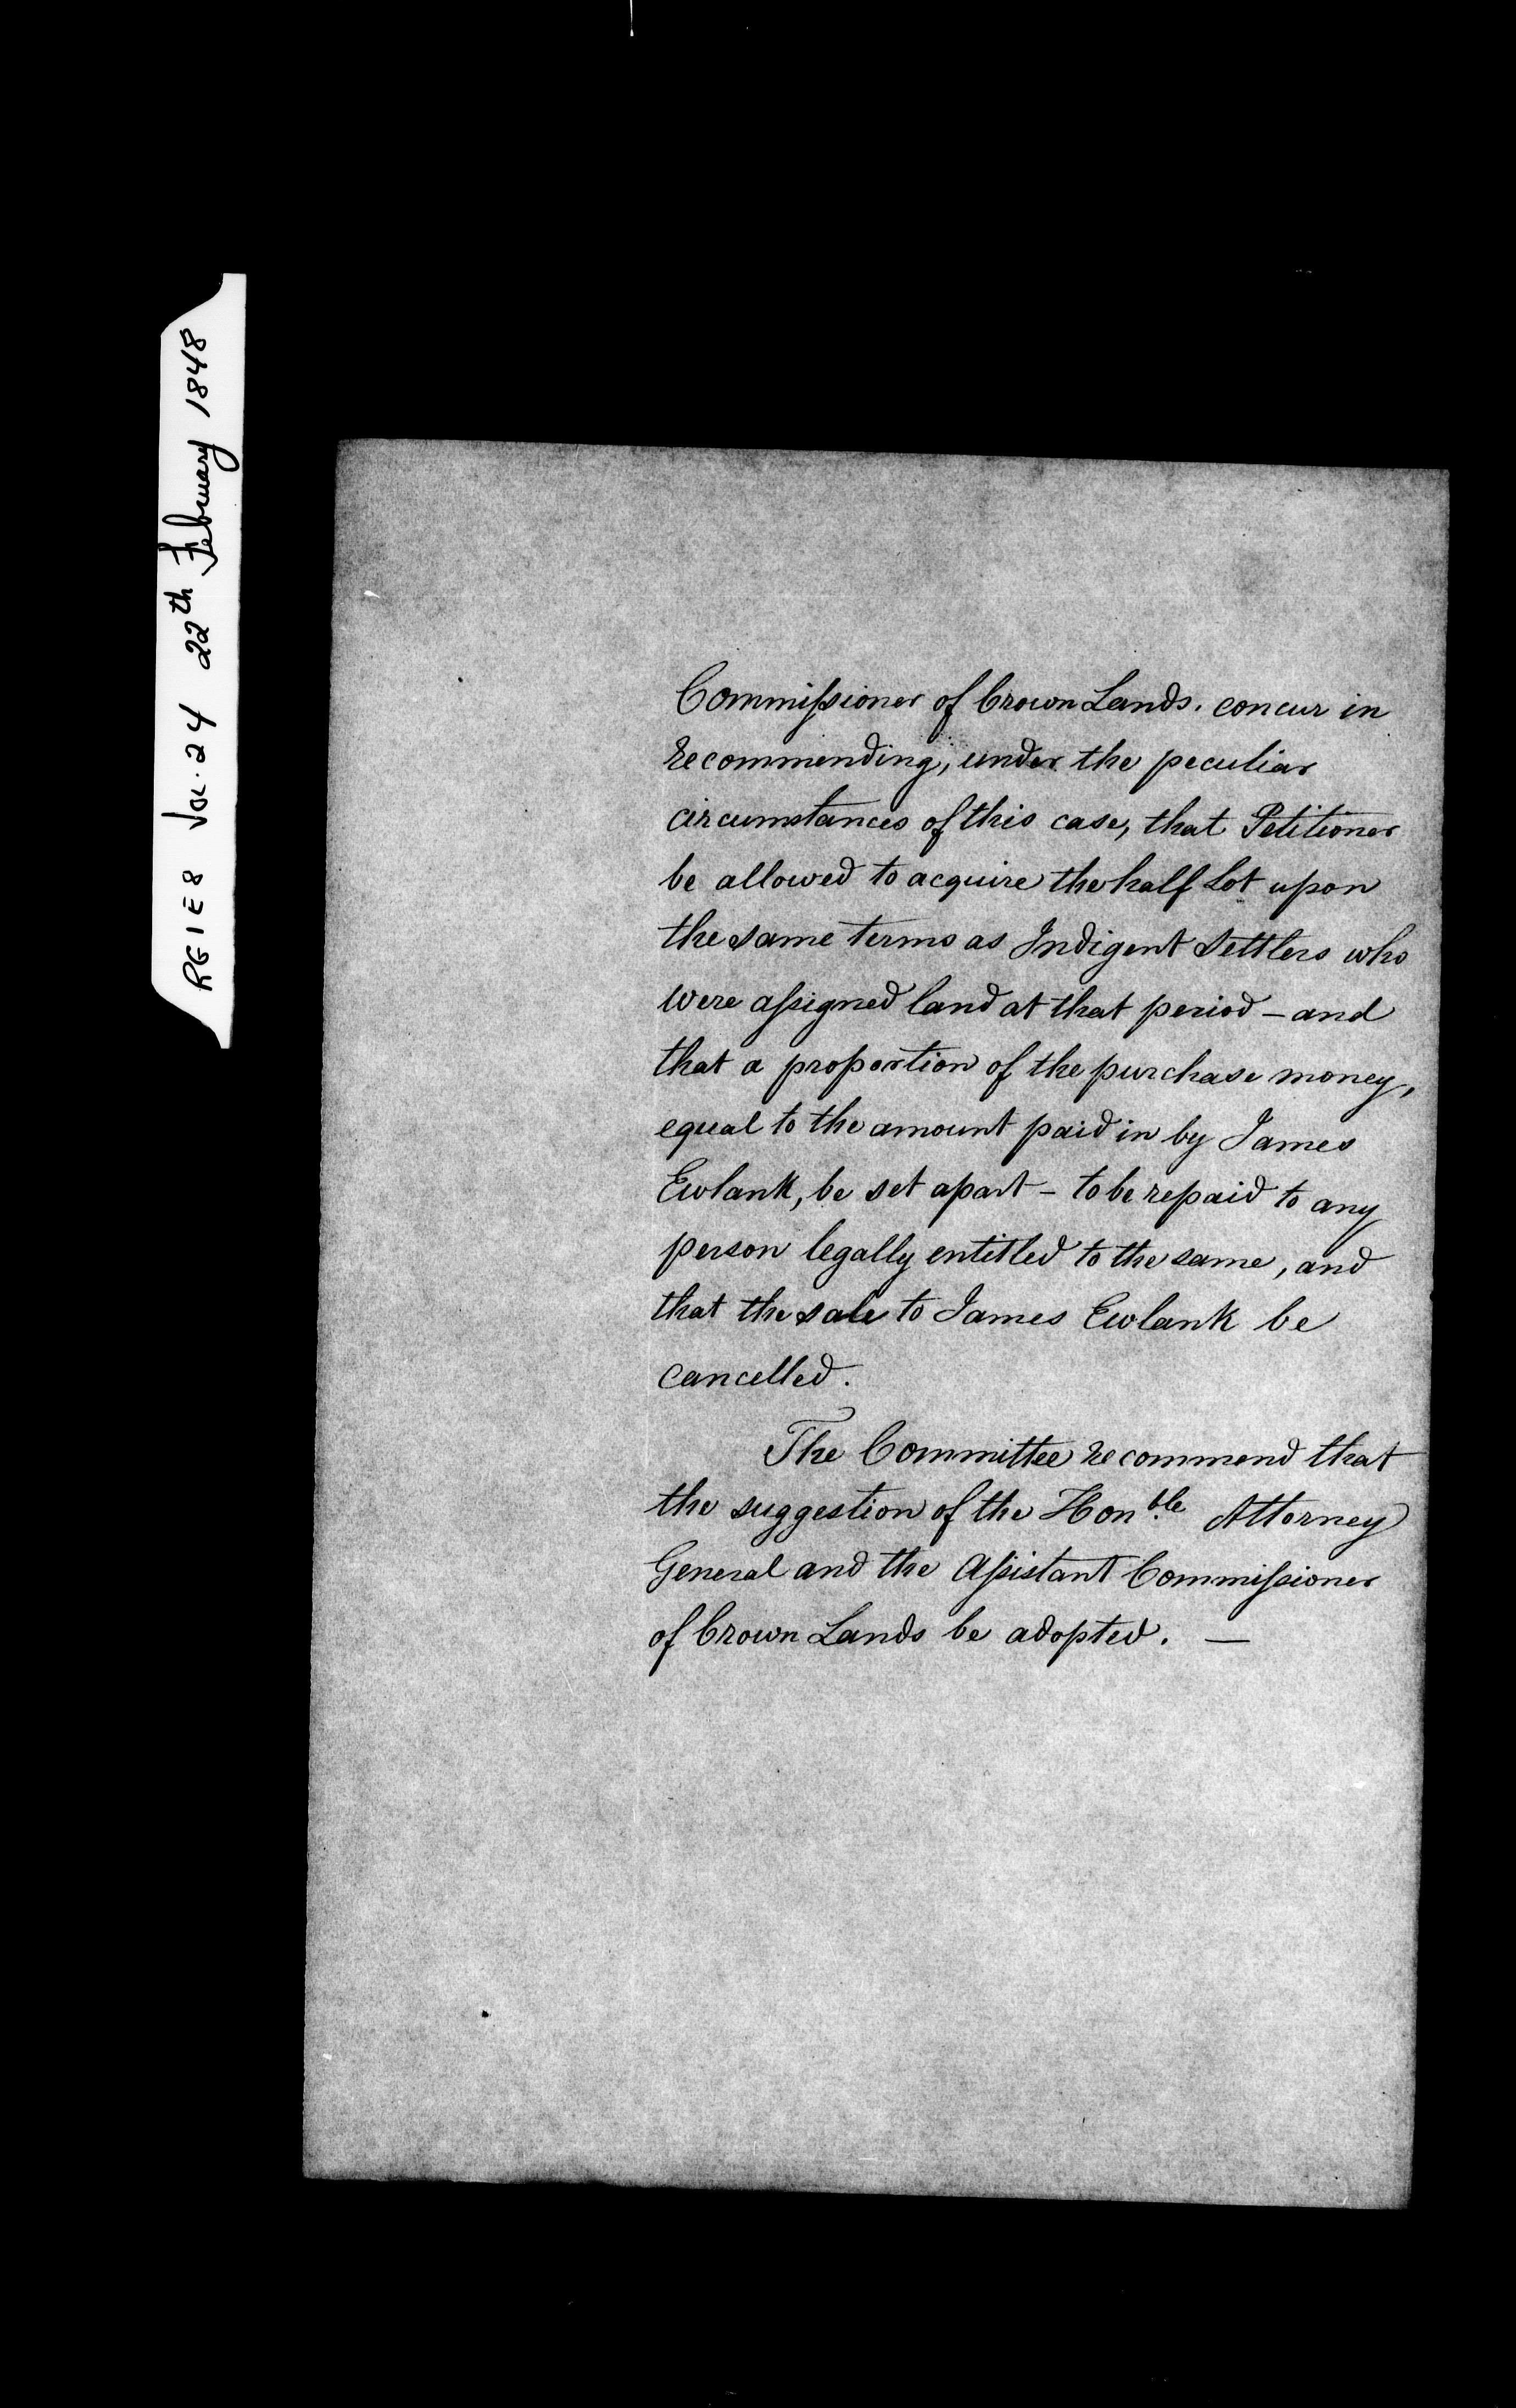 RG 1 E 8 Vol. 24 22th February 1848
Commissioner of Crown Lands. concur in
recommending, under the peculiar
circumstances of this case, that Petitioner
be allowed to acquire the half Lot upon
the same terms as Indigent Settlers who
were assigned land at that period – and
that a proportion of the purchase money,
equal to the amount paid in by James
Ewlank, be set apart – to be repaid to any
person legally entitled to the same, and
that the sale to James Ewlank be
cancelled.
The Committee recommend that
the suggestion of the Honble Attorney
General and the Assistant Commissioner
of Crown Lands be adopted. —